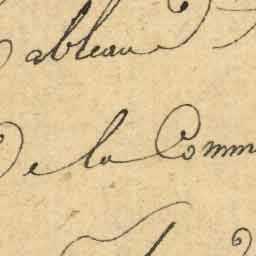 Tableau D
De la Comm